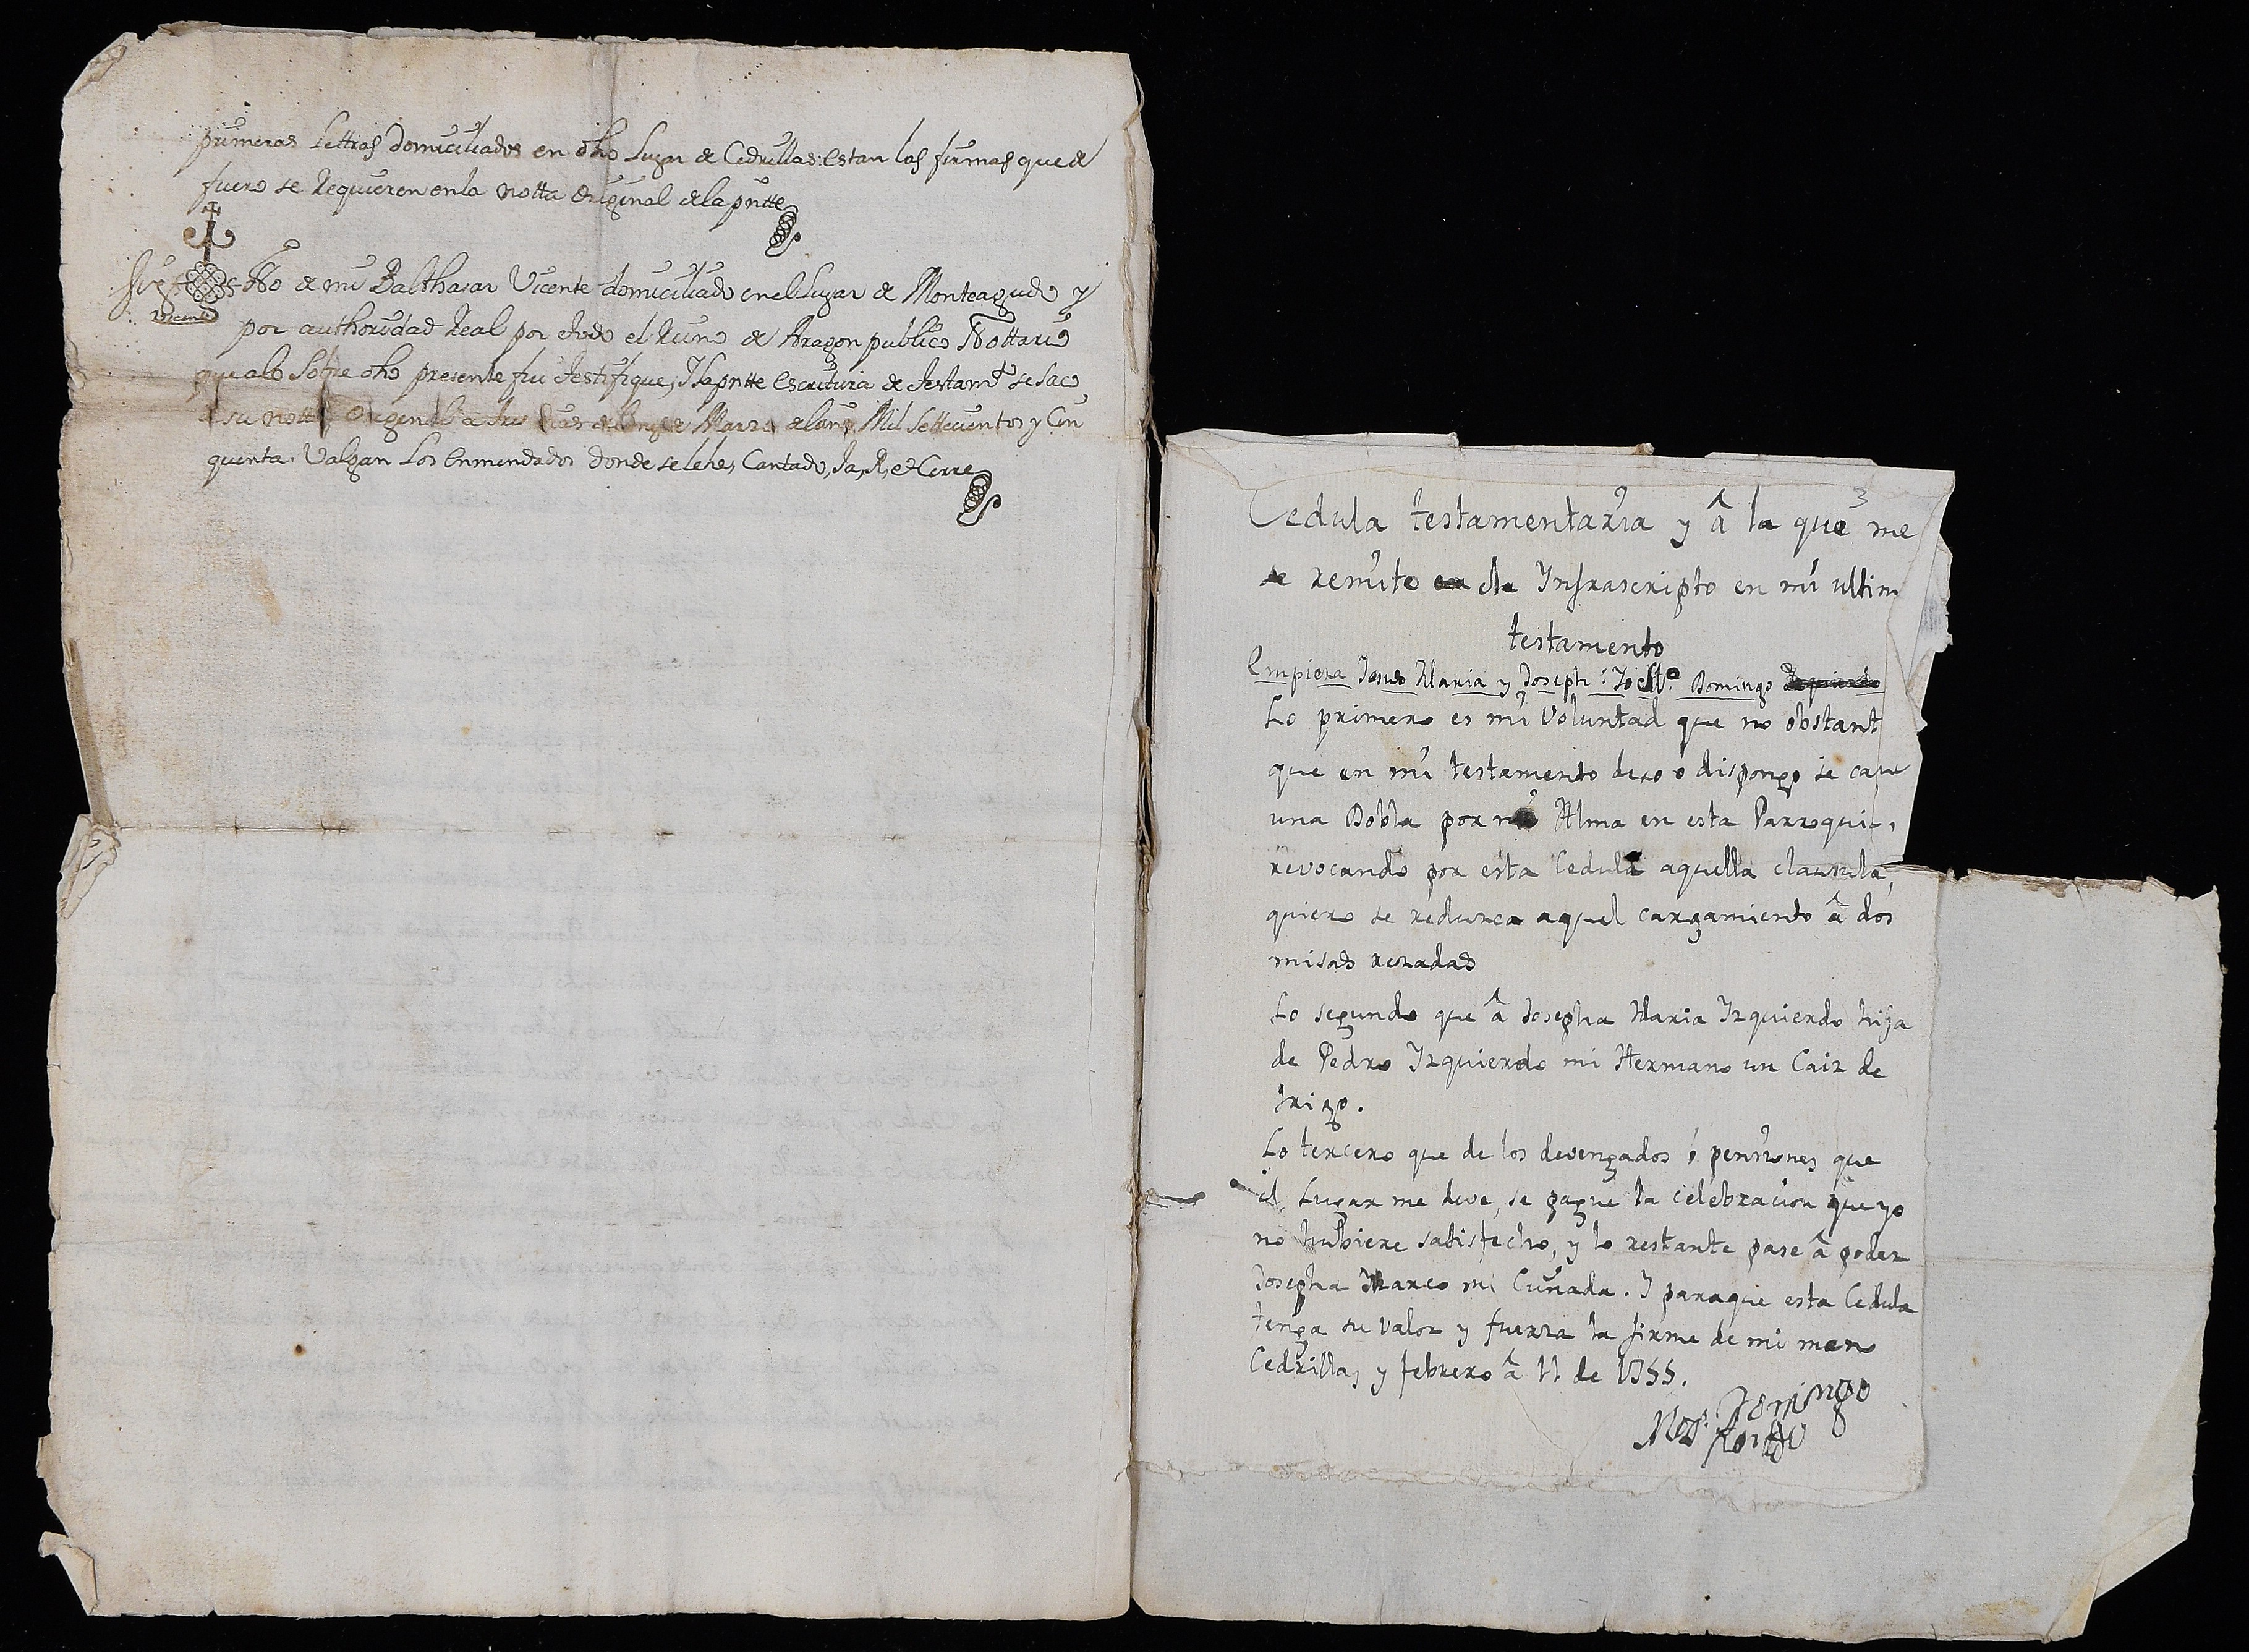 primeras Lettras domiciliados en dho Lugar de Cedrillas: estan las firmas que de
fuero se Requieren en la notta original de la pntte
Sig no de mi Balthasar Vicente domiciliado en el Lugar de Monteagudo y
Vicente
por authoridad Real por todo el Reino de Aragon publico Nottario
que a lo Sobre dho presente fui testifique, Y la pntte Escritura de testamto se saco
de su notta Original a tres dias del mes de Marzo del año Mil Settecientos y Cin
quenta. Valgan los enmendados donde se lehe, Cantado, Ja, R, et Cerre
3
Cedula testamentaria y â la que me
remito el Infrascripto en mi ultim
testamento
Empieza Jesus Maria y Joseph: Yo el Vo. Domingo Izquierdo
Lo primero es mi voluntad que no obstant
que en mi testamento dexo o dispongo se cante
una Dobla por mi Alma en esta Parroquia,
revocando por esta Cedula aquella clausula,
quiero se reduzca aquel cargamiento â dos
misas rezadas
Lo segundo que â Josepha Maria Izquierdo hija
de Pedro Izquierdo mi Hermano un Caiz de
trigo.
Lo tercero que de los devengados ó pensiones que
el Lugar me deve, se pague la celebracion que yo
no hubiere satisfecho, y lo restante pase â poder
Josepha Marco mi Cuñada. Y paraque esta Cedula
tenga su valor y fuerza la firme de mi mano
Cedrillas y febrero â 11 de 1755.
Mos. Domingo